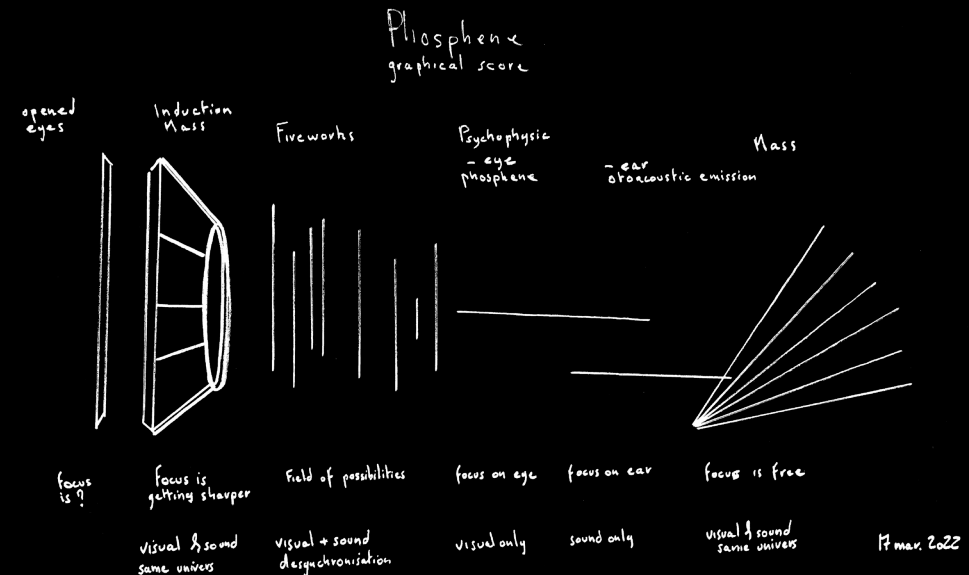 Phosphene
graphical score
opened
eyes
Induction
Mass
Fireworks
Psychophysic
- eye
phosphene
- ear
otoacoustic emission
Mass
focus
is?
Focus is
getting sharper
Field of possibilities
focus on eye
focus on ear
focus is free
visual & sound
same univers
visual + sound
desynchronisation
visual only
sound only
visual & sound
same univers
17 mar. 2022